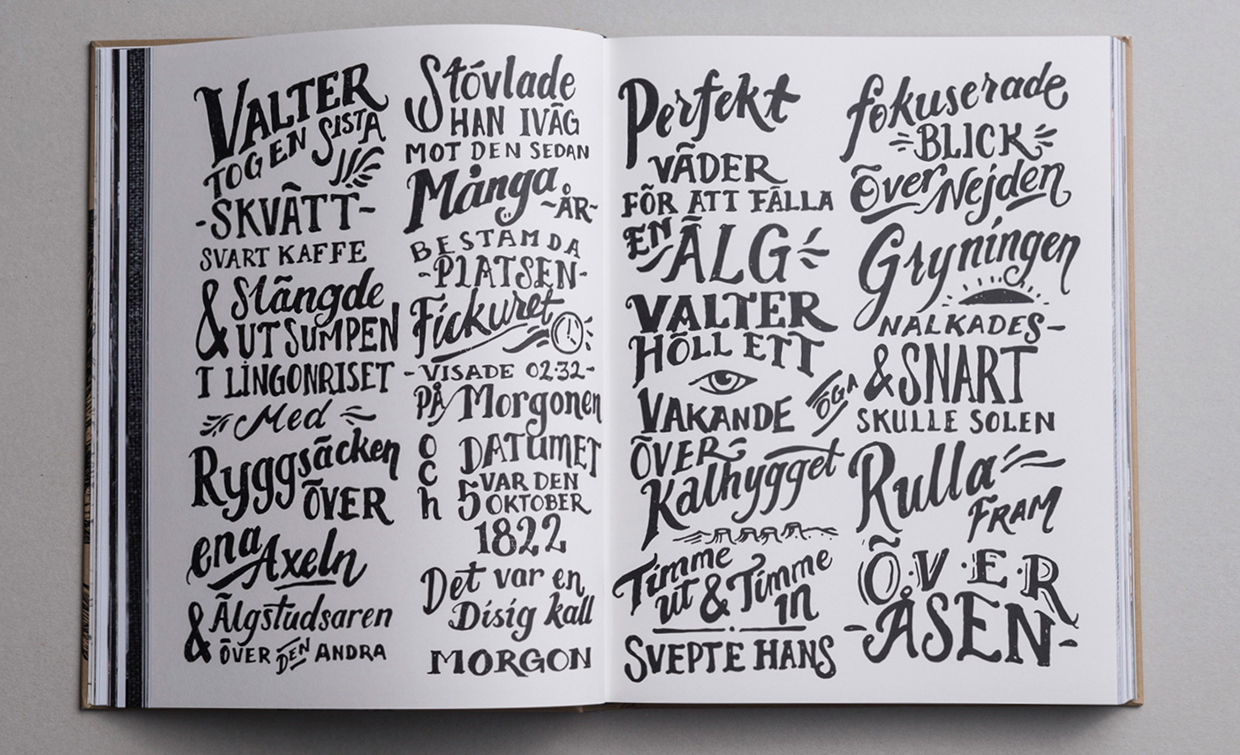 VALTER
TOG EN SISTA
-SKVÄTT-
SVART KAFFE
& Slängde
UT SUMPEN
I LINGONRISET
Med
Ryggsäcken
ÖVER
ena Axeln
& Älgstudsaren
ÖVER DEN ANDRA
Stövlade
HAN IVÄG
MOT DEN SEDAN
Många
-ÅR-
BESTÄMDA
-PLATSEN-
Fickuret
-VISADE 02:32-
PÅ Morgonen
och DATUMET
VAR DEN
5 OKTOBER
1822
Det var en
Disig kall
MORGON
Perfekt
VÄDER
FÖR ATT FÄLLA
EN ÄLG
VALTER
HÖLL ETT
VAKANDE ÖGA
ÖVER
Kalhygget
Timme
ut & Timme
in
SVEPTE HANS
fokuserade
BLICK
Över Nejden
Gryningen
NALKADES-
& SNART
SKULLE SOLEN
Rulla
FRAM
Ö.V.E.R
-ÅSEN-